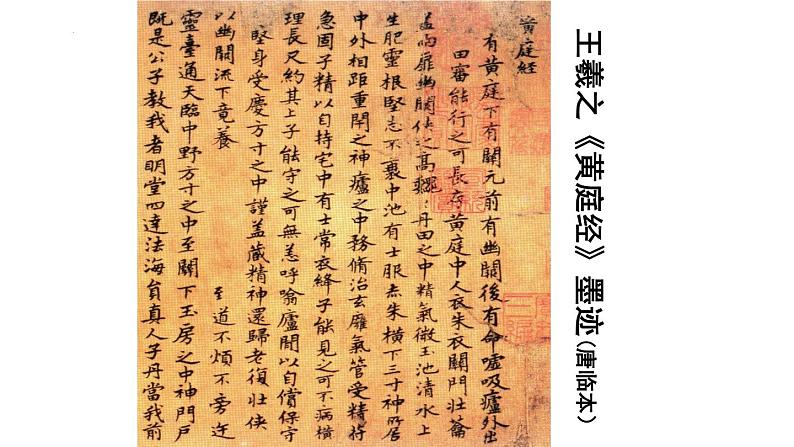 王羲之《黄庭经》墨迹(唐临本)
黄庭経
有黄庭下有關元前有幽闕後有命噓吸廬外出
田審能行之可長存黄庭中人衣朱衣關門壯籥
盖兩扉幽闕俠之高巍丹田之中精氣微玉池清水上
生肥靈根堅志不衰中池有士服赤朱横下三寸神所居
中外相距重閉之神廬之中務脩治玄雍氣管受精符
急固子精以自持宅中有士常衣絳子能見之可不病横
理長尺約其上子能守之可無恙呼噏廬間以自償保守
堅身受慶方寸之中謹盖藏精神還歸老復壯俠
以幽闕流下竟養 至道不煩不旁迕
靈臺通天臨中野方寸之中至關下玉房之中神門戶
既是公子教我者明堂四達法海員真人子丹當我前